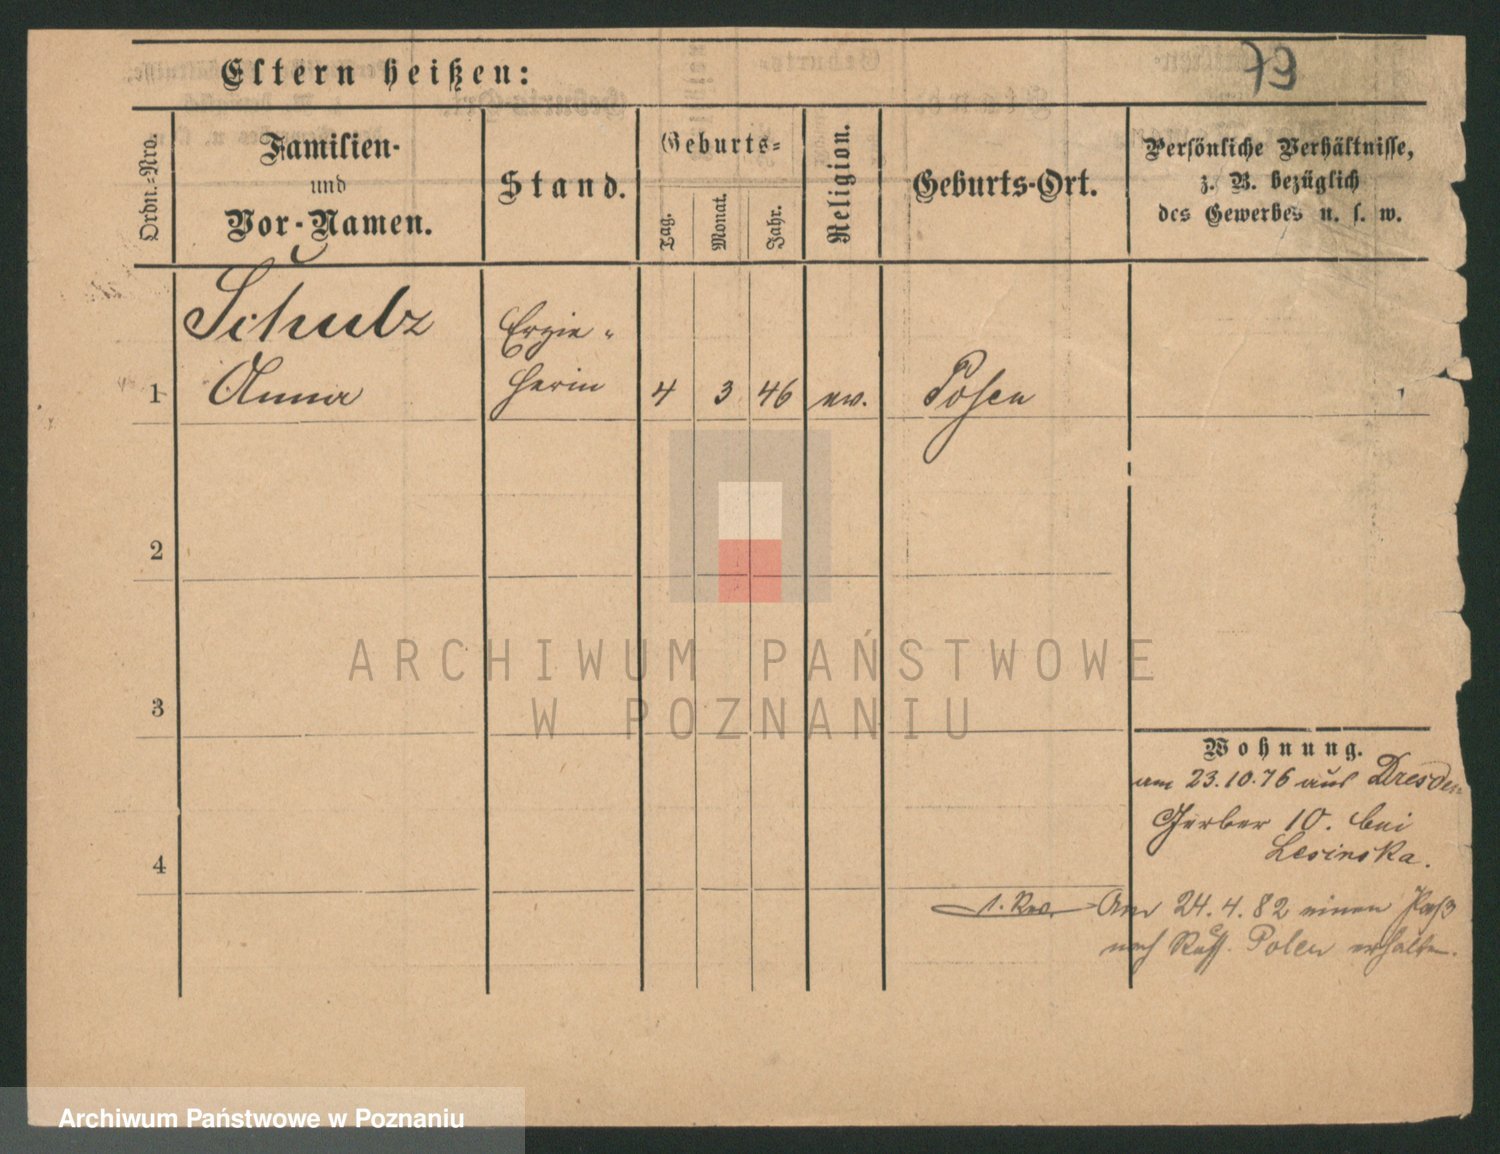 79
Eltern heißen:
Ordn.-Nro.
Familien-
und
Vor-Namen.
Stand.
Geburts-
Tag.
Monat.
Jahr.
Religion.
Geburts-Ort.
Persönliche Verhältnisse,
z. B. bezüglich
des Gewerbes u. s. w.
Schulz
Erzie-
1 Anna herin 4 3 46 ev. Posen
2
3
4
Wohnung.
am 23.10.76 aus Dresden
Gerber 10. bei
Lesinska.
Am 24.4.82 einen Paß
nach Russ. Polen erhalten.
ARCHIWUM PAŃSTWOWE
W POZNANIU
Archiwum Państwowe w Poznaniu